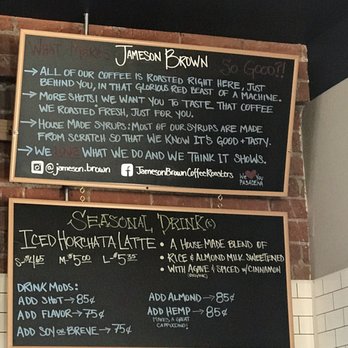 WHAT MAKES JAMESON BROWN SO GOOD?!
→ ALL OF OUR COFFEE IS ROASTED RIGHT HERE, JUST
BEHIND YOU, IN THAT GLORIOUS RED BEAST OF A MACHINE.
→ MORE SHOTS! WE WANT YOU TO TASTE THAT COFFEE
WE ROASTED FRESH, JUST FOR YOU.
→ HOUSE MADE SYRUPS: MOST OF OUR SYRUPS ARE MADE
FROM SCRATCH SO THAT WE KNOW IT'S GOOD + TASTY.
→ WE LOVE WHAT WE DO AND WE THINK IT SHOWS.
@jameson.brown JamesonBrownCoffeeRoasters WE ♥
PASADENA
SEASONAL DRINK(S)
ICED HORCHATA LATTE • A HOUSE MADE BLEND OF
S-$4.65 M-$5.00 L-$5.35 • RICE & ALMOND MILK, SWEETENED
• WITH AGAVE & SPICED W/CINNAMON
DRINK MODS:
ADD SHOT → 85¢ ADD ALMOND → 85¢
ADD FLAVOR → 75¢ ADD HEMP → 85¢
MAKES A GREAT
CAPPUCINO
ADD SOY OR BREVE → 75¢